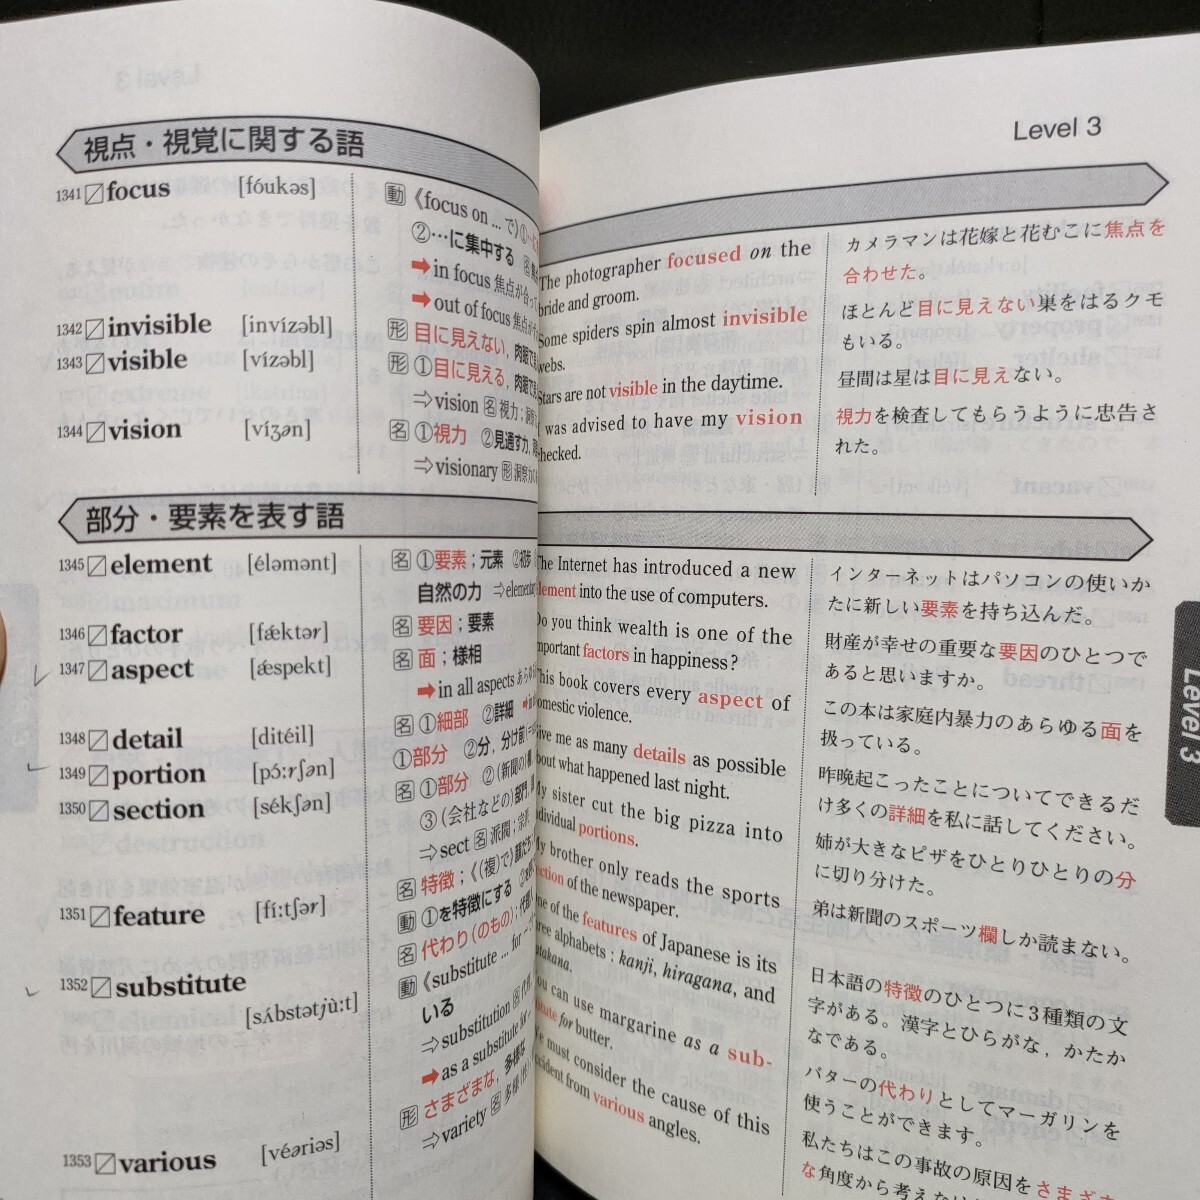 視点・視覚に関する語
1341 focus [fóukəs]
動 《focus on … で》①
②…に集中する 名
➡in focus 焦点が合っ
➡out of focus 焦点が
1342 invisible [invízəbl]
形 目に見えない,
1343 visible [vízəbl]
形 ①目に見える,
⇒vision 名 視力;
1344 vision [víʒən]
名 ①視力 ②見通す力,
⇒visionary 形 洞察力
部分・要素を表す語
1345 element [éləmənt]
名 ①要素；元素 ②初歩
自然の力 ⇒elementary
1346 factor [fǽktər]
名 要因；要素
1347 aspect [ǽspekt]
名 面；様相
➡in all aspects あらゆる
1348 detail [ditéil]
名 ①細部 ②詳細
1349 portion [pɔ́ːrʃən]
①部分 ②分, 分け前
1350 section [sékʃən]
名 ①部分 ②(新聞の)
③(会社などの)部門,
⇒sect 名 派閥；宗派
1351 feature [fíːtʃər]
名 特徴；《(複)で》
動 ①を特徴にする
1352 substitute
[sʌ́bstətjùːt]
名 代わり(のもの)；
動 《substitute … for ~
いる
⇒substitution 名
➡as a substitute
1353 various [véəriəs]
形 さまざまな, 多様な
⇒variety 名
Level 3
The photographer focused on the
bride and groom.
カメラマンは花嫁と花むこに焦点を
合わせた。
Some spiders spin almost invisible
webs.
ほとんど目に見えない巣をはるクモ
もいる。
Stars are not visible in the daytime.
昼間は星は目に見えない。
was advised to have my vision
checked.
視力を検査してもらうように忠告さ
れた。
The Internet has introduced a new
element into the use of computers.
インターネットはパソコンの使いか
たに新しい要素を持ち込んだ。
Do you think wealth is one of the
important factors in happiness?
財産が幸せの重要な要因のひとつで
あると思いますか。
This book covers every aspect of
domestic violence.
この本は家庭内暴力のあらゆる面を
扱っている。
Give me as many details as possible
about what happened last night.
昨晩起こったことについてできるだ
け多くの詳細を私に話してください。
My sister cut the big pizza into
individual portions.
姉が大きなピザをひとりひとりの分
に切り分けた。
My brother only reads the sports
section of the newspaper.
弟は新聞のスポーツ欄しか読まない。
One of the features of Japanese is its
three alphabets : kanji, hiragana, and
katakana.
日本語の特徴のひとつに3種類の文
字がある。漢字とひらがな，かたか
なである。
You can use margarine as a sub-
stitute for butter.
バターの代わりとしてマーガリンを
使うことができます。
We must consider the cause of this
accident from various angles.
私たちはこの事故の原因をさまざま
な角度から考えな
Level 3